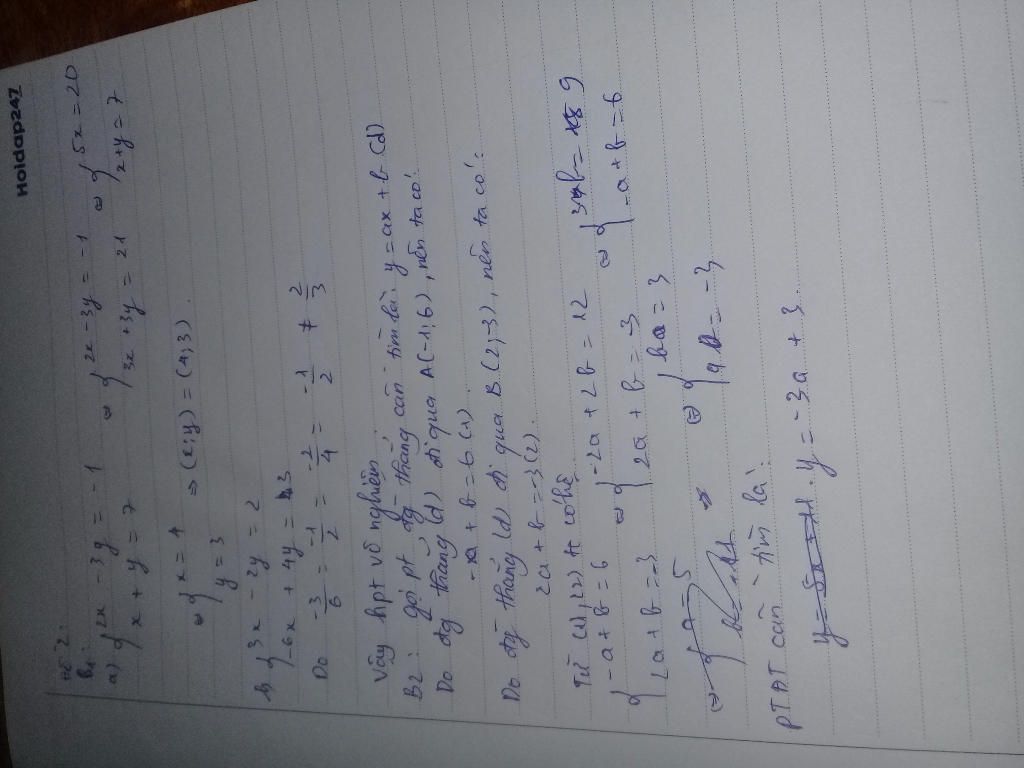 Hoidap247
Đề 2:
B1:
a) { 2x - 3y = -1 ⇔ { 2x - 3y = -1 ⇔ { 5x = 20
x + y = 7 3x + 3y = 21 2+y = 7
⇔ { x = 4 ⇒ (x;y) = (4;3).
y = 3
b { 3x - 2y = 2
-6x + 4y = 3
Do -3/6 = -1/2 = -2/4 = -1/2 ≠ 2/3
Vậy hpt vô nghiệm.
B2: gọi pt đg thẳng cần tìm là: y = ax + b (d)
Do đg thẳng (d) đi qua A(-1;6), nên ta có:
-a + b = 6 (1)
Do đg thẳng (d) đi qua B(2;-3), nên ta có:
2a + b = -3 (2).
Từ (1), (2) có hệ
{ -a + b = 6 ⇔ { -2a + 2b = 12 ⇔ { 3b = 9
2a + b = -3 2a + b = -3 -a + b = 6
⇔ ⇔ { b = 3
a = -3
PTĐT cần tìm là:
y = -3a + 3.